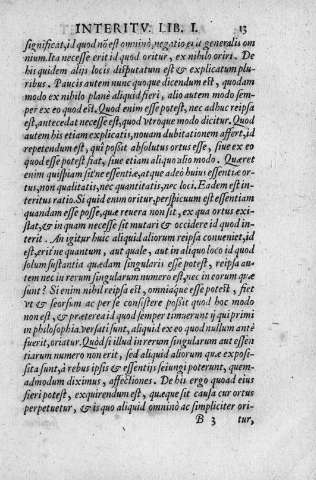 INTERITV. LIB. I. 13
significat, id quod nō est omninò, negatio est generalis om
nium. Ita necesse erit id quod oritur, ex nihilo oriri. De
his quidem alijs locis disputatum est & explicatum plu
ribus. Paucis autem nunc quoque dicendum est, quodam
modo ex nihilo planè aliquid fieri, alio autem modo sem-
per ex eo quod est. Quod enim esse potest, nec adhuc reipsa
est, antecedat necesse est, quod vtroque modo dicitur. Quod
autem his etiam explicatis, nouam dubitationem affert, id
repetendum est, quî possit absolutus ortus esse, siue ex eo
quod esse potest fiat, siue etiam aliquo alio modo. Quæret
enim quispiam sit'ne essentiæ, atque adeò huius essentiæ or-
tus, non qualitatis, nec quantitatis, nec loci. Eadem est in-
teritus ratio. Si quid enim oritur, perspicuum est essentiam
quandam esse posse, quæ reuera non sit, ex qua ortus exi-
stat, & in quam necesse sit mutari & occidere id quod in-
terit. An igitur huic aliquid aliorum reipsa conueniet, id
est, erit'ne quantum, aut quale, aut in aliquo loco id quod
solùm substantia quædam singularis esse potest, reipsa au-
tem nec in rerum singularum numero est, nec in eorum quæ
sunt? Si enim nihil reipsa est, omniaque esse potest, fiet
vt & seorsim ac per se consistere possit quod hoc modo
non est, & præterea id quod semper timuerunt ij qui primi
in philosophia versati sunt, aliquid ex eo quod nullum antè
fuerit, oriatur. Quòd si illud in rerum singularum aut essen
tiarum numero non erit, sed aliquid aliorum quæ exposi-
sita sunt, à rebus ipsis & essentijs seiungi poterunt, quem-
admodum diximus, affectiones. De his ergo quoad eius
fieri potest, exquirendum est, quæque sit causa cur ortus
perpetuetur, & is quo aliquid omninò ac simpliciter ori-
B 3 tur,